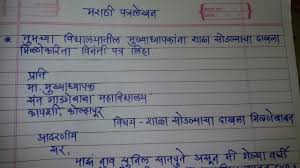 मराठी पत्रलेखन
* तुमच्या विद्यालयातील मुख्याध्यापकांना शाळा सोडल्याचा दाखला
मिळणेकरिता विनंती पत्र लिहा
प्रति
मा. मुख्याध्यापक
संत गाडगेबाबा महाविद्यालय
कापशी, कोल्हापूर
विषय - शाळा सोडल्याचा दाखला मिळणेबाबत
आदरणीय
सर,
माझे नाव सुनिल सातपुते असून मी गेल्या वर्षी